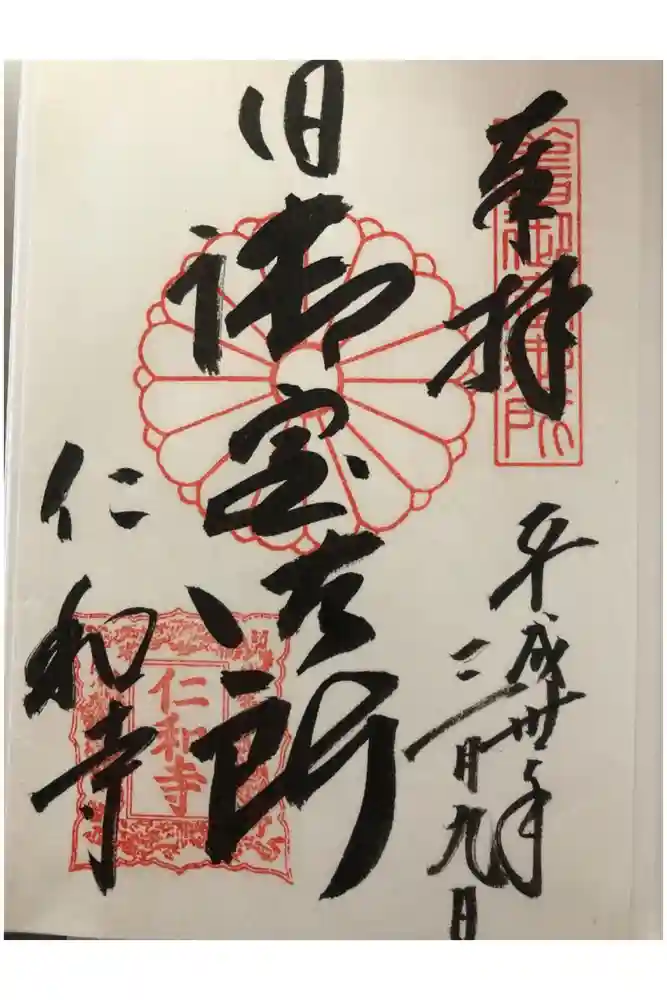 奉拝
舊御室御所
平成卅年
三月九日
旧御室御所
仁和寺
仁和寺